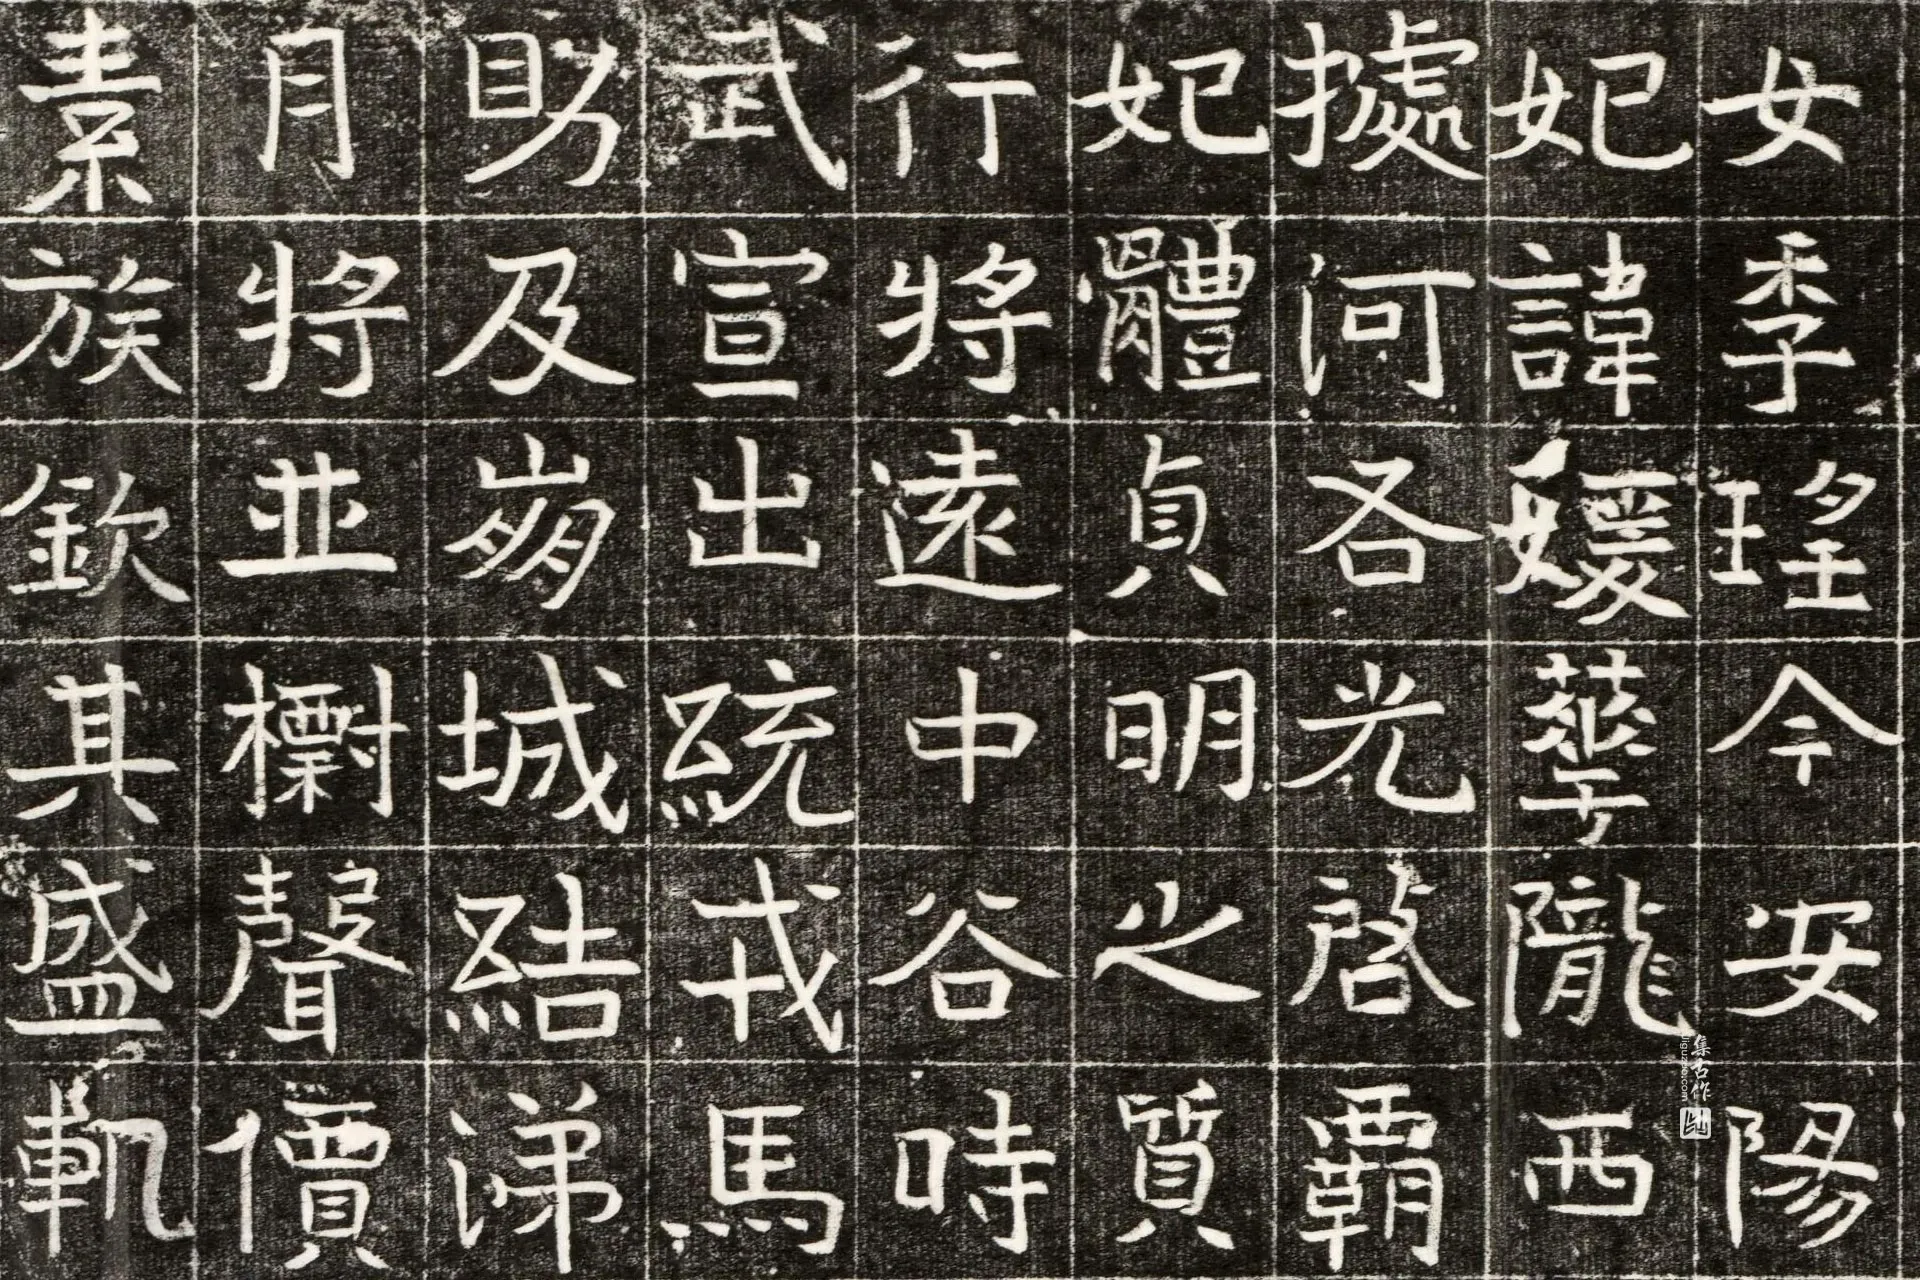 女季瑤今安陽
妃諱媛華隴西
據河右光啓霸
妃體貞明之質
行將遠中谷時
武宣出統戎馬
助及崩城結涕
月將並樹聲價
素族欽其盛軌
集古作
jiguzuo.com